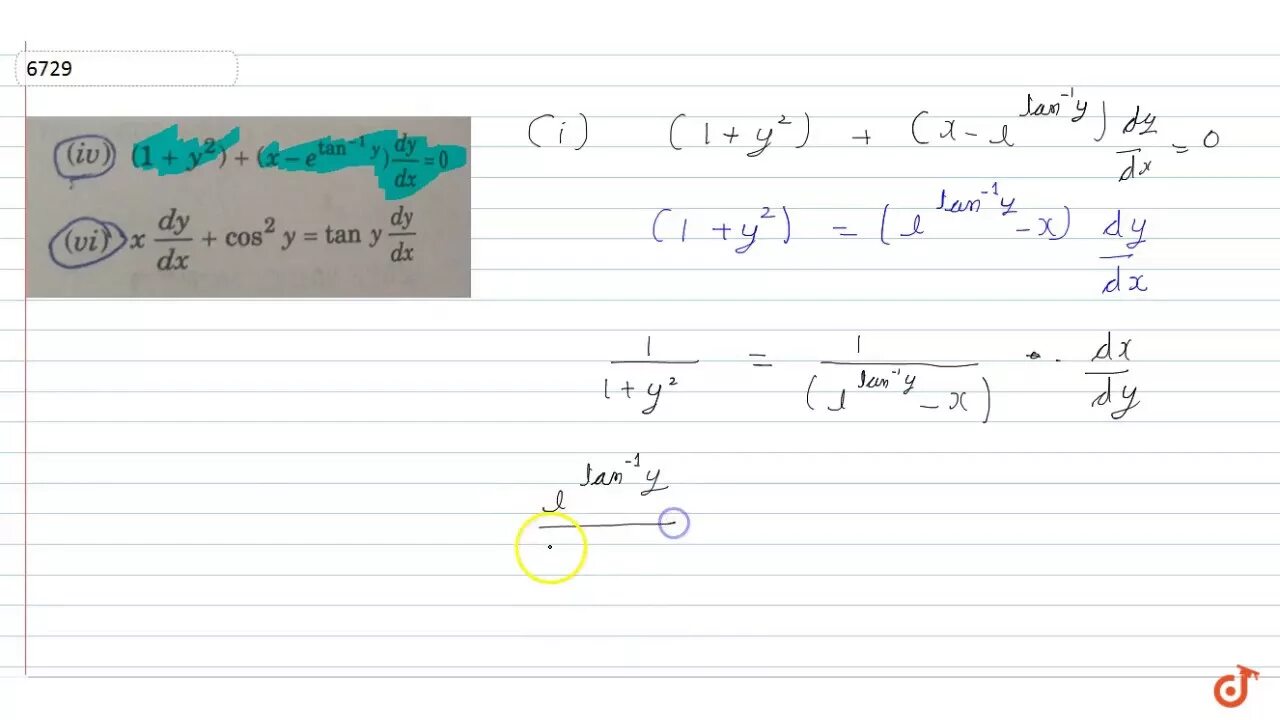 6729
(iv) (1 + y²) + (x – e^(tan⁻¹ y)) dy/dx = 0
(vi) x dy/dx + cos² y = tan y dy/dx
(i) (1 + y²) + (x – e^(tan⁻¹y)) dy/dx = 0
(1 + y²) = (e^(tan⁻¹y) – x) dy/dx
1/(1 + y²) = 1/(e^(tan⁻¹y) – x) · dx/dy
e^(tan⁻¹y)